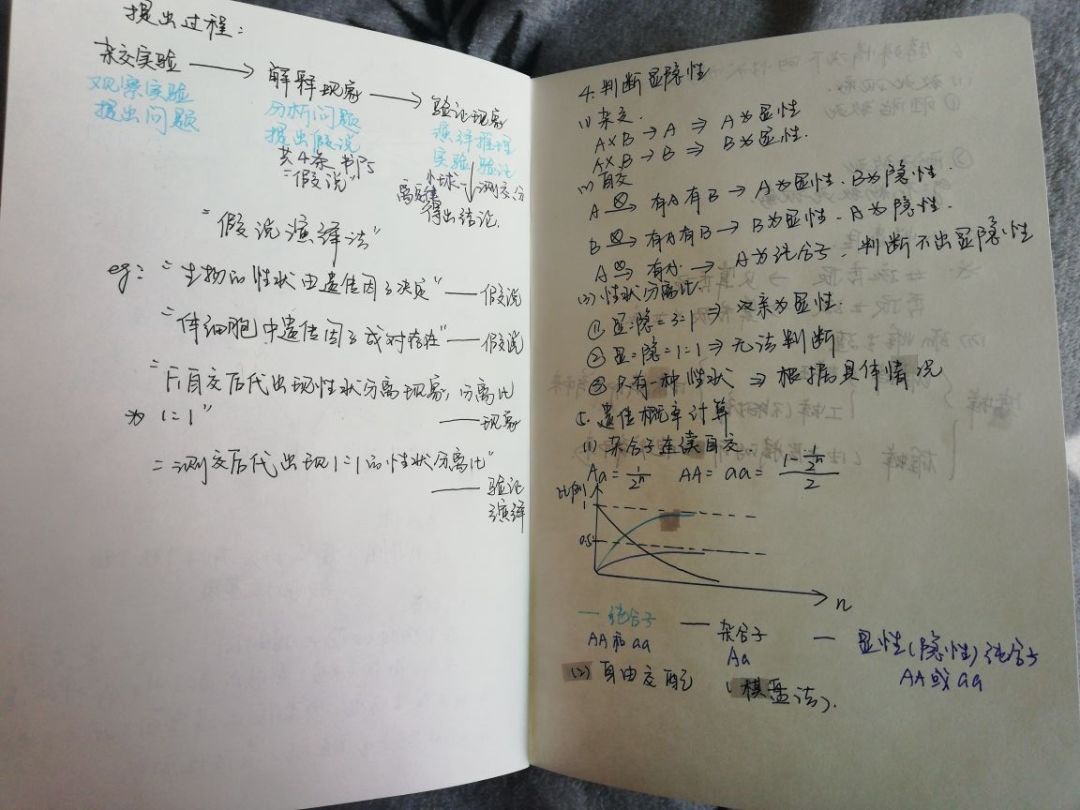 提出过程：
杂交实验 → 解释现象 → 验证现象
观察实验 分析问题 演绎推理
提出问题 提出假说 实验验证
共4条 书P5
"假说"
小球 ↓ 测交
得出结论.
"假说演绎法"
eg："生物的性状由遗传因子决定" —— 假说
"体细胞中遗传因子成对存在" —— 假说
"F₁自交后代出现性状分离现象，分离比
为 1:1"
—— 现象
"测交后代出现1:1的性状分离比"
—— 验证
演绎
4.判断显隐性
(1)杂交.
A×B → A ⇒ A为显性
A×B → B ⇒ B为显性.
自交
A ⊗→ 有A有B → A为显性.B为隐性.
B ⊗→ 有A有B → B为显性.A为隐性.
A ⊗→ 有A → A为纯合子，判断不出显隐性
(3)性状分离比
① 显:隐=3:1 ⇒ 双亲为显性.
② 显:隐=1:1 ⇒ 无法判断
③ 只有一种性状 ⇒ 根据具体情况
5.遗传概率计算
(1)杂合子连续自交.
Aa = 1/2ⁿ AA = aa = (1-1/2ⁿ)/2
比例
1
0.5
n
— 纯合子 — 杂合子 — 显性(隐性)纯合子
AA和aa Aa AA或aa
(2)自由交配 (棋盘法).